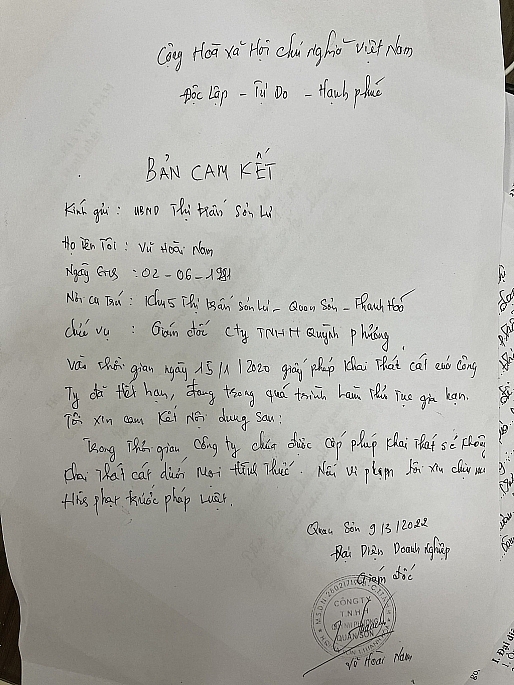 Cộng Hoà xã Hội chủ nghĩa Việt Nam
Độc Lập - Tự Do - Hạnh phúc
BẢN CAM KẾT
Kính gửi : UBND Thị trấn Sơn Lư
Họ tên Tôi : Vũ Hoài Nam
Ngày sinh : 02-06-1981
Nơi cư trú : Khu 5 Thị trấn Sơn Lư - Quan Sơn - Thanh Hoá
chức vụ : Giám đốc Cty TNHH Quỳnh Phương
Vào thời gian ngày 15/1/2020 giấy phép khai thác cát của Công
Ty đã Hết hạn, đang trong quá trình Làm thủ tục gia hạn.
Tôi xin cam kết Nội dung sau:
Trong Thời gian Công ty chưa được cấp phép khai thác sẽ không
khai thác cát dưới mọi Hình Thức. Nếu vi phạm tôi xin chịu mọi
Hình phạt trước pháp Luật.
Quan Sơn 9/3/2022
Đại Diện Doanh nghiệp
Giám đốc
CÔNG TY
T.N.H.H
QUỲNH PHƯƠNG
QUAN SƠN
Vũ Hoài Nam